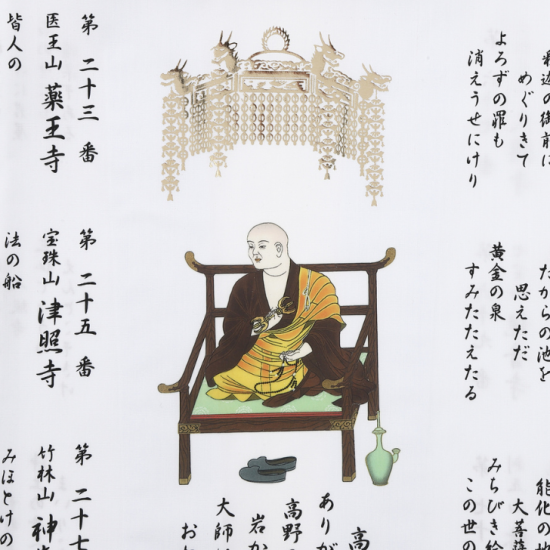 めぐりきて
よろずの罪も
消えうせにけり
たからの池を
思えただ
黄金の泉
すみたたえたる
大菩薩
みちびき給
この世の
高
ありが
高野の
岩か
大師は
第二十三番
医王山 薬王寺
皆人の
第二十五番
宝珠山 津照寺
法の船
第二十七
竹林山 神
みほとけの